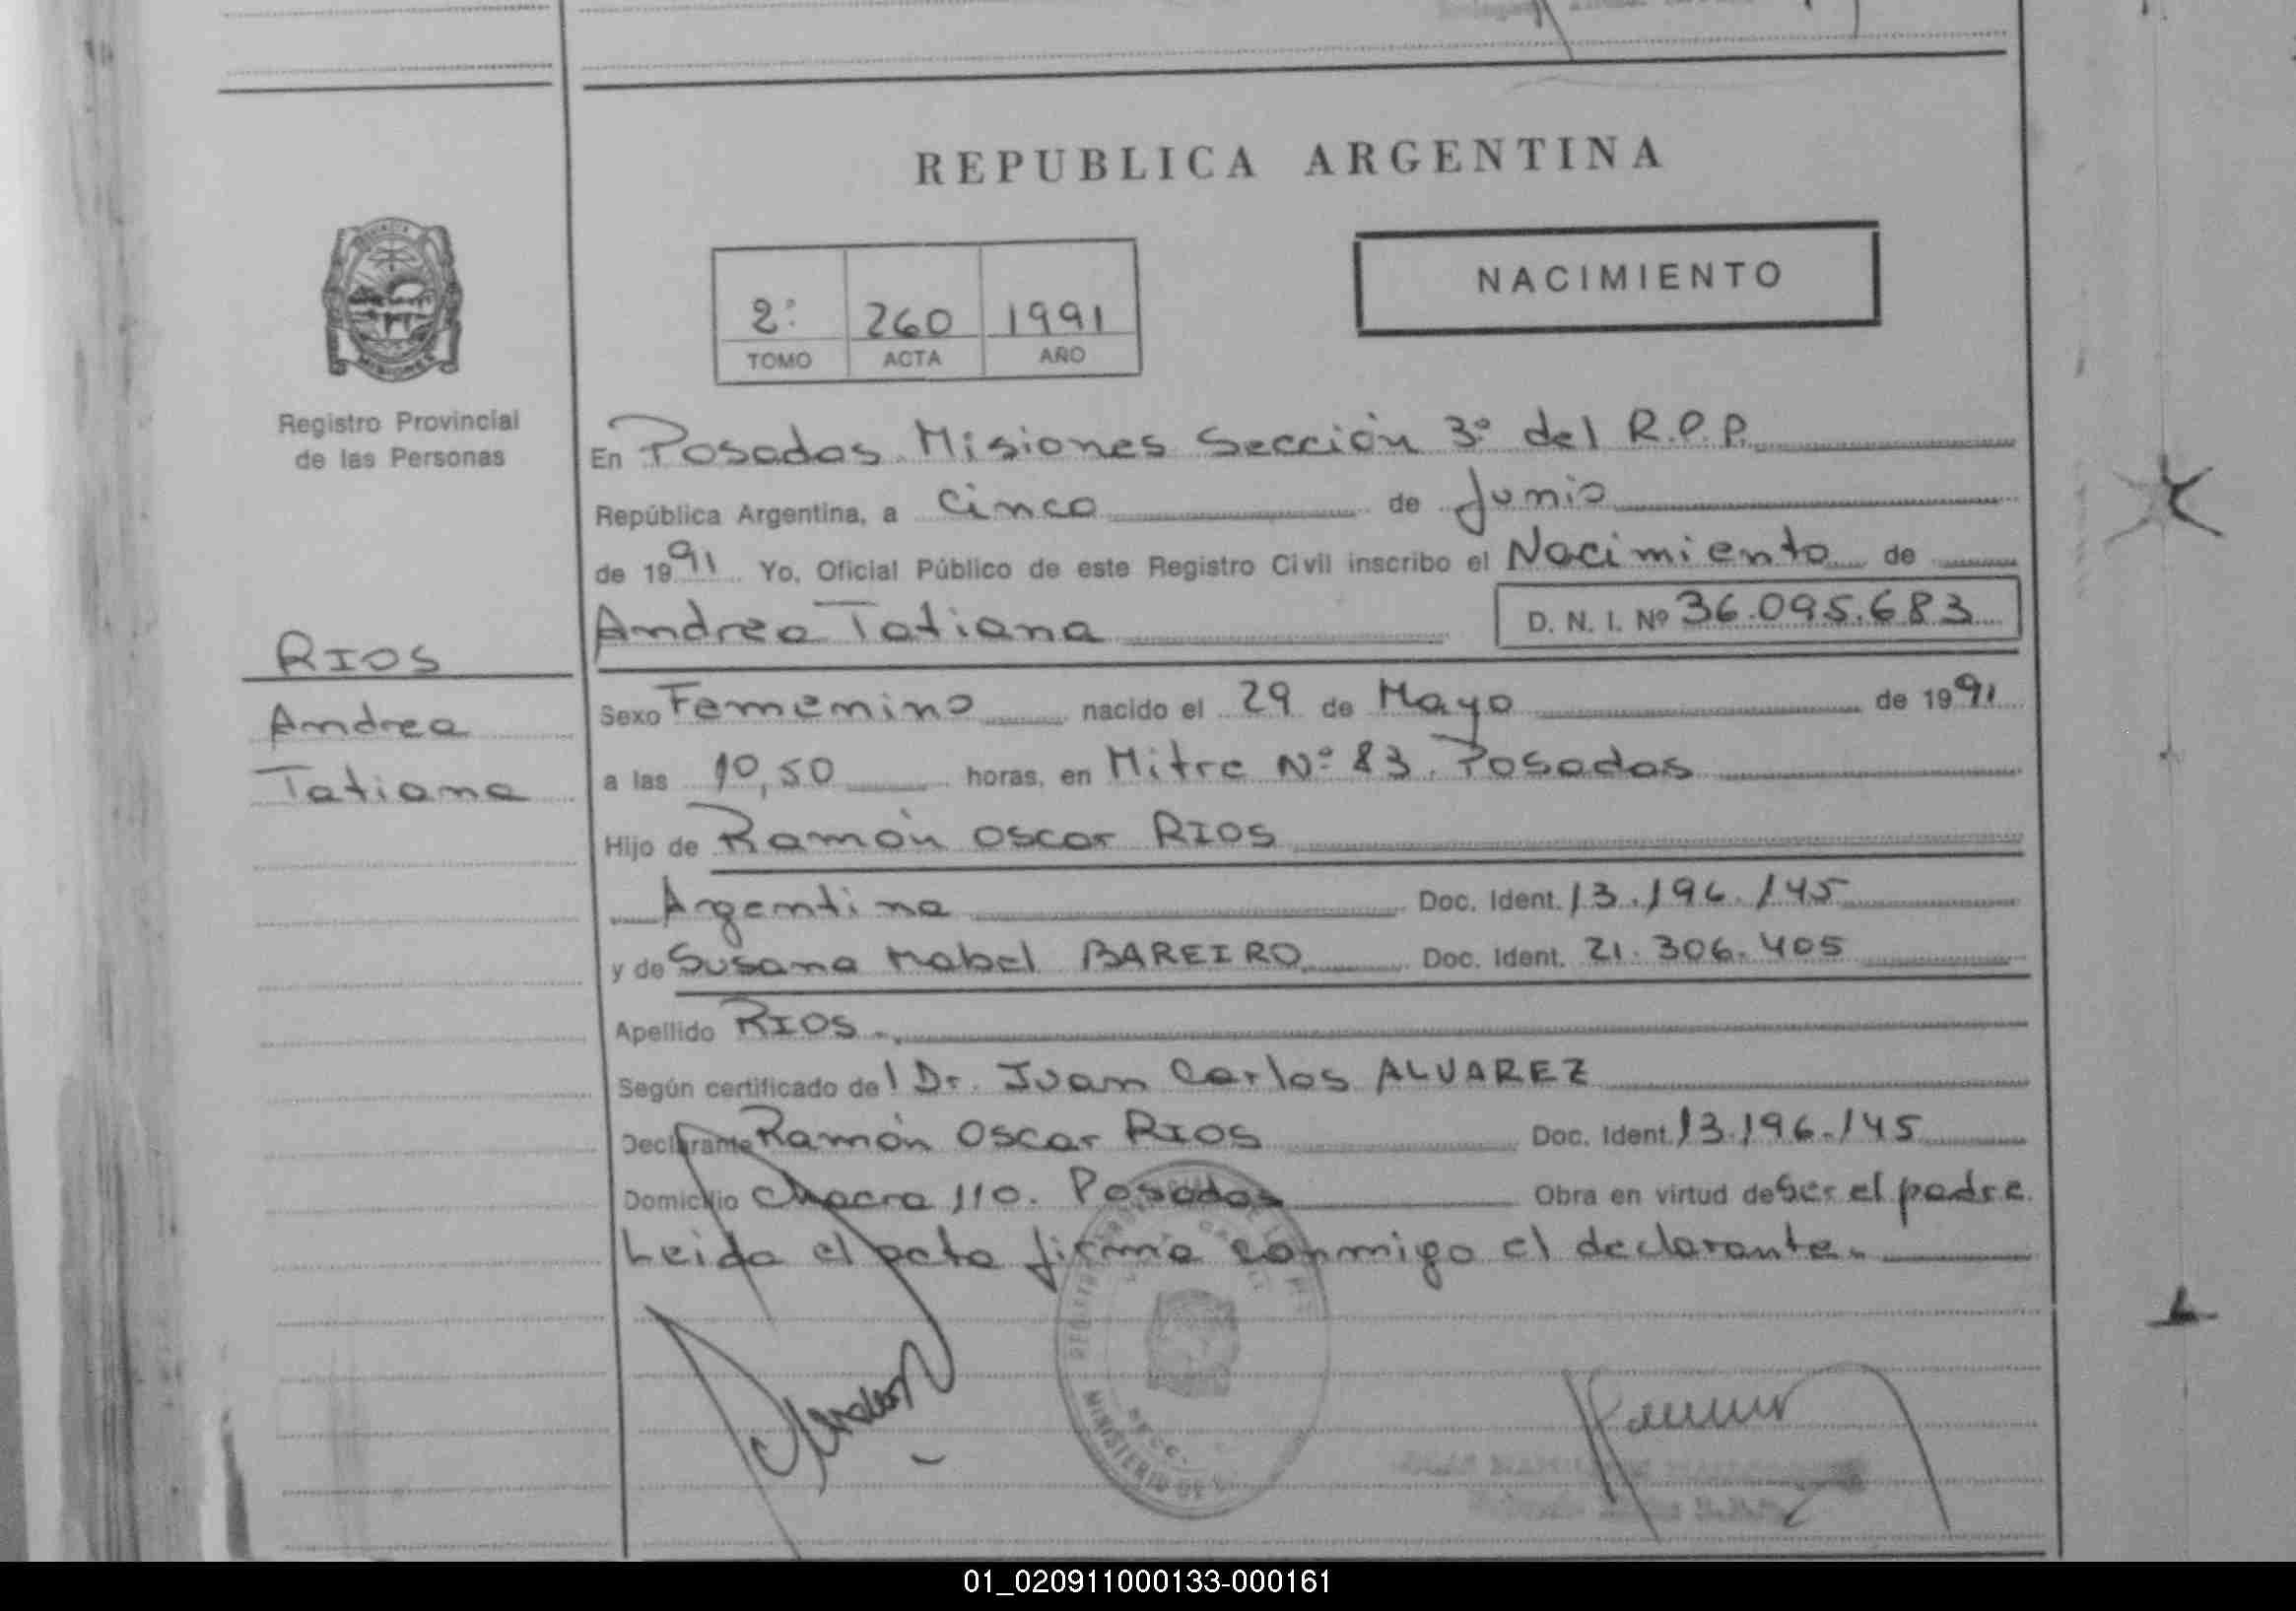 REPUBLICA ARGENTINA
NACIMIENTO
2º 260 1991
TOMO ACTA AÑO
Registro Provincial
de las Personas
MISIONES
RIOS
Andrea
Tatiana
En Posadas Misiones Sección 3º del R.P.P.
República Argentina, a Cinco de Junio
de 1991 Yo, Oficial Público de este Registro Civil inscribo el Nacimiento de
Andrea Tatiana D. N. I. Nº 36.095.683
Sexo Femenino nacido el 29 de Mayo de 1991
a las 10,50 horas, en Mitre Nº 83. Posadas
Hijo de Ramón Oscar RIOS
Argentina Doc. Ident. 13.196.145
y de Susana Mabel BAREIRO Doc. Ident. 21.306.405
Apellido RIOS.
Según certificado del Dr. Juan Carlos ALVAREZ
Declarante Ramón Oscar RIOS Doc. Ident. 13.196.145
Domicilio Chacra 110. Posadas Obra en virtud de Ser el padre.
Leida el acta firma conmigo el declarante.
MINISTERIO DE
01_020911000133-000161